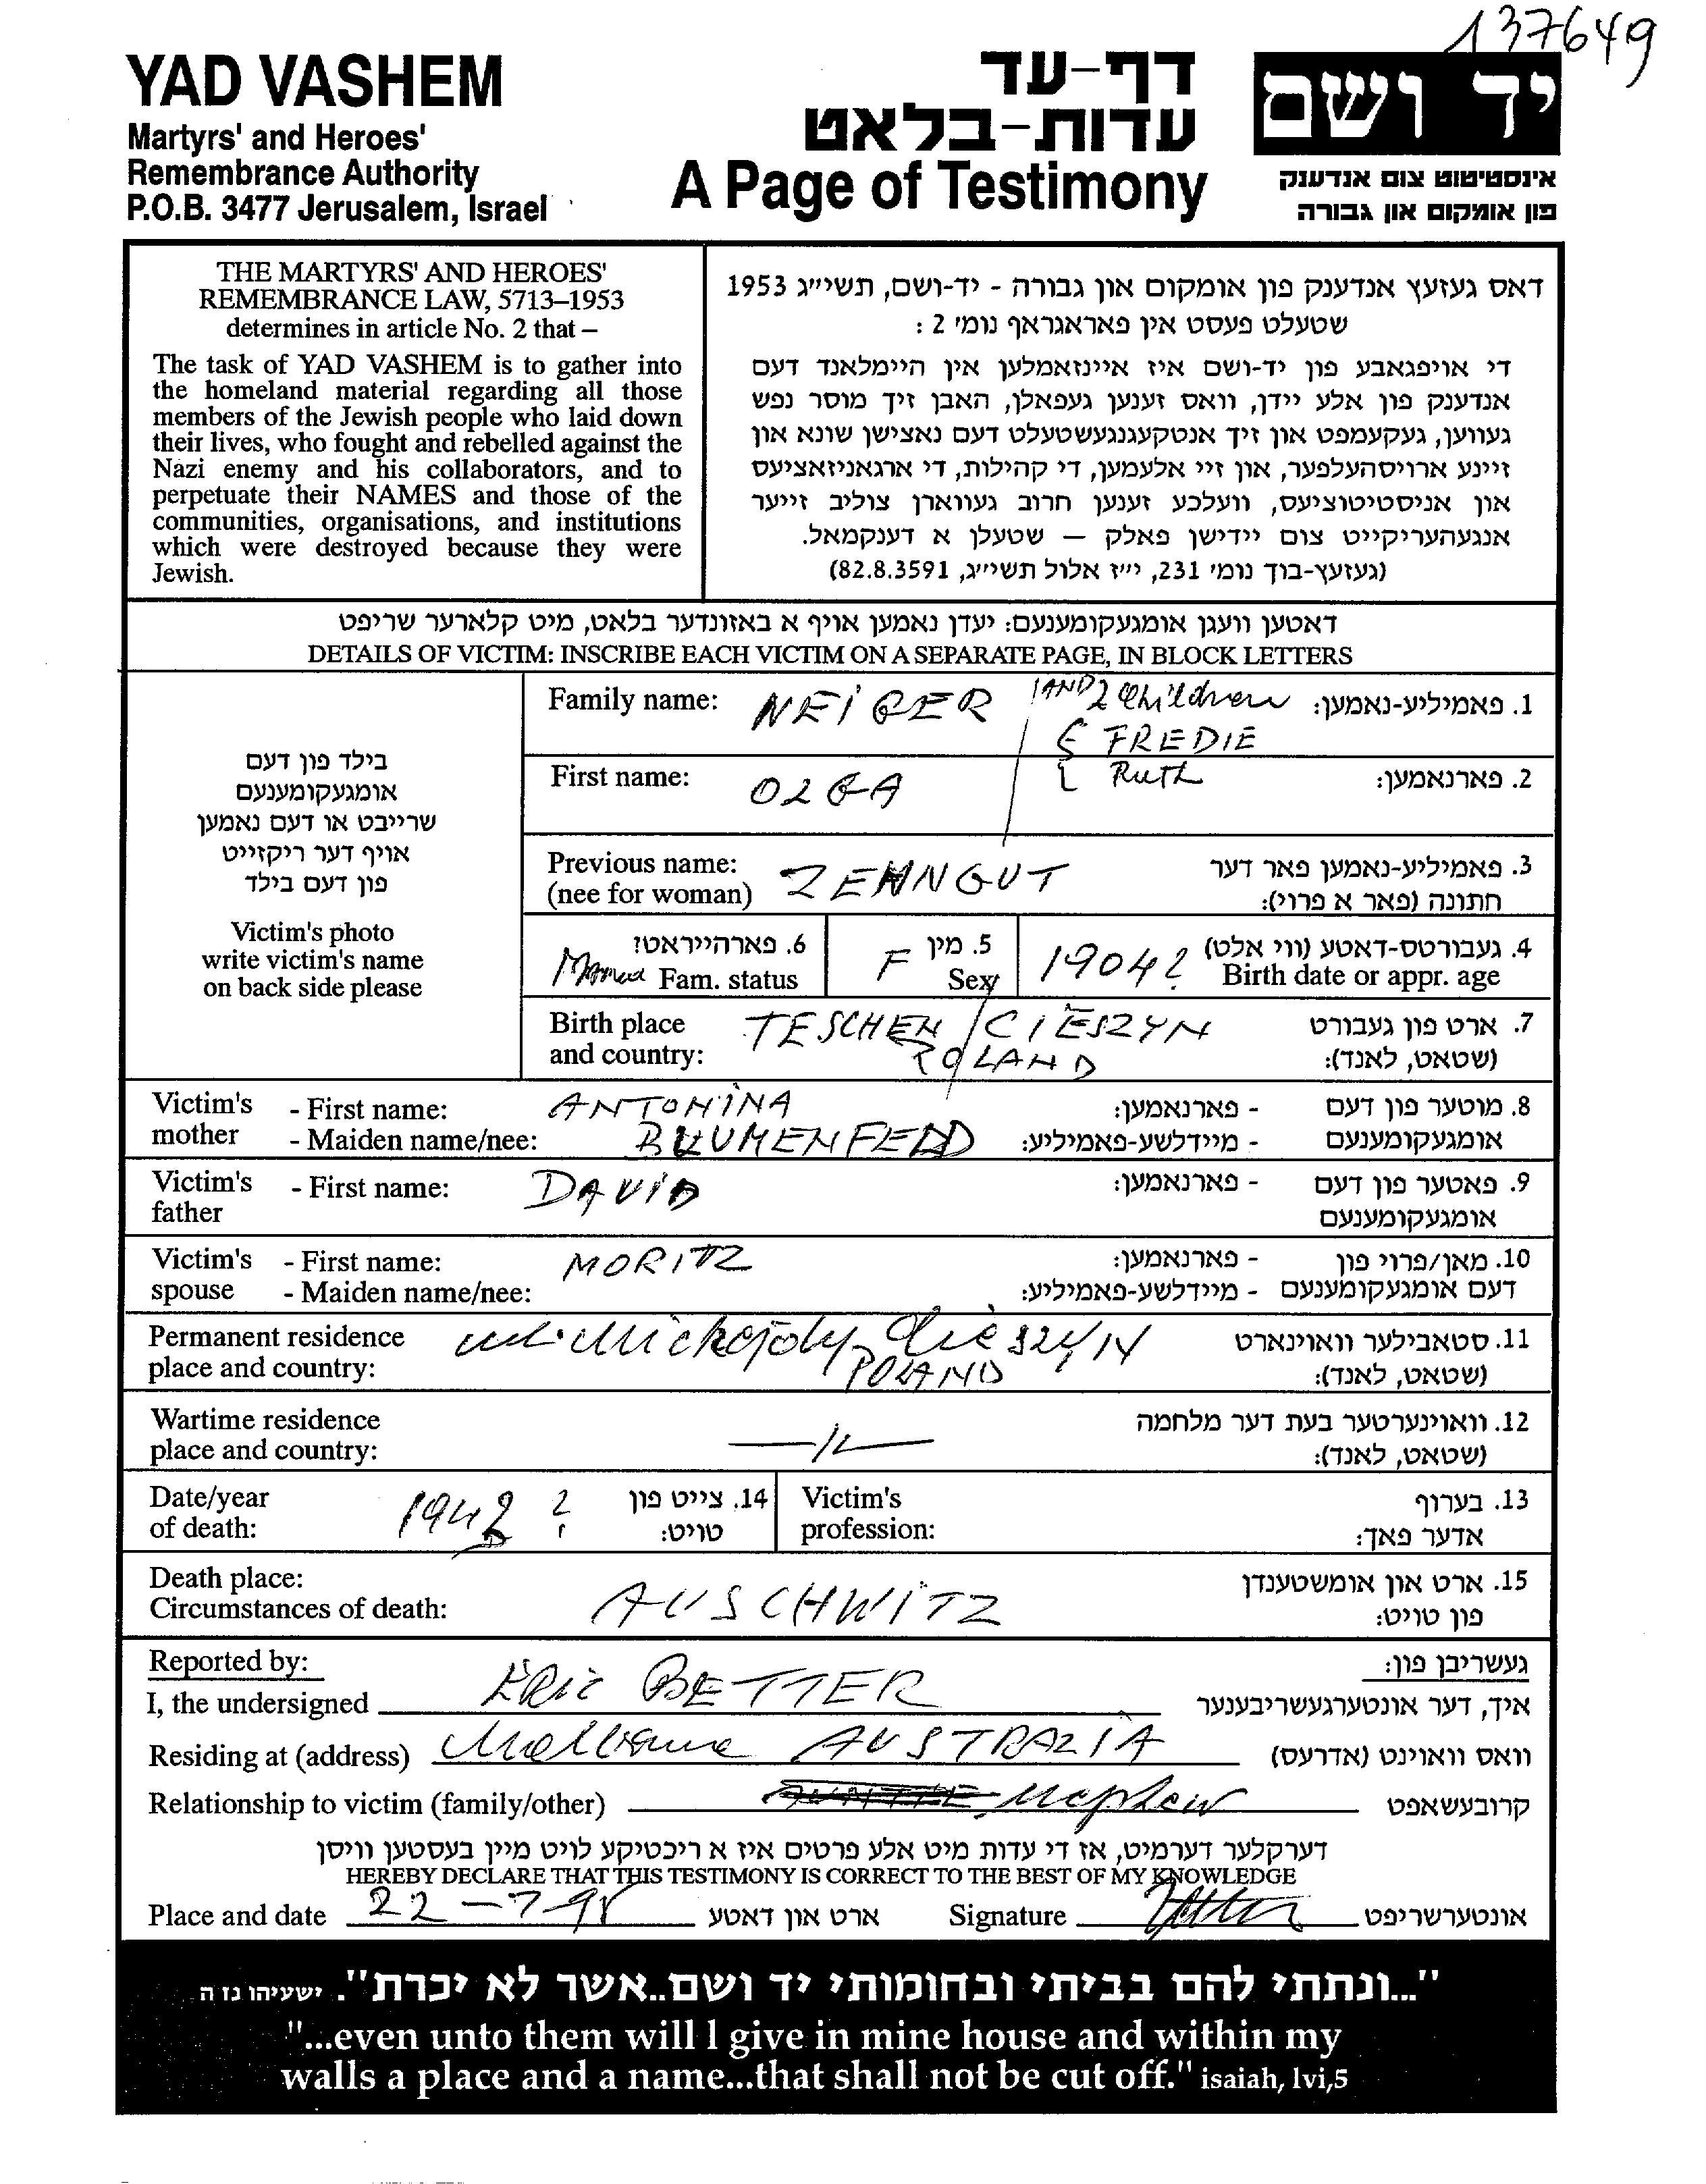 137649
YAD VASHEM
Martyrs' and Heroes'
Remembrance Authority
P.O.B. 3477 Jerusalem, Israel
דף-עד
עדות-בלאט
A Page of Testimony
יד ושם
אינסטיטוט צום אנדענק
פון אומקום און גבורה
THE MARTYRS' AND HEROES'
REMEMBRANCE LAW, 5713–1953
determines in article No. 2 that –
The task of YAD VASHEM is to gather into
the homeland material regarding all those
members of the Jewish people who laid down
their lives, who fought and rebelled against the
Nazi enemy and his collaborators, and to
perpetuate their NAMES and those of the
communities, organisations, and institutions
which were destroyed because they were
Jewish.
דאס געזעץ אנדענק פון אומקום און גבורה - יד-ושם, תשי״ג 1953
שטעלט פעסט אין פאראגראף נומ׳ 2 :
די אויפגאבע פון יד-ושם איז איינזאמלען אין היימלאנד דעם
אנדענק פון אלע יידן, וואס זענען געפאלן, האבן זיך מוסר נפש
געווען, געקעמפט און זיך אנטקעגנגעשטעלט דעם נאצישן שונא און
זיינע ארויסהעלפער, און זיי אלעמען, די קהילות, די ארגאניזאציעס
און אניסטיטוציעס, וועלכע זענען חרוב געווארן צוליב זייער
אנגעהעריקייט צום יידישן פאלק — שטעלן א דענקמאל.
(געזעץ-בוך נומ׳ 231, י״ז אלול תשי״ג, 82.8.3591)
דאטען וועגן אומגעקומענעם: יעדן נאמען אויף א באזונדער בלאט, מיט קלארער שריפט
DETAILS OF VICTIM: INSCRIBE EACH VICTIM ON A SEPARATE PAGE, IN BLOCK LETTERS
בילד פון דעם
אומגעקומענעם
שרייבט או דעם נאמען
אויף דער ריקזייט
פון דעם בילד
Victim's photo
write victim's name
on back side please
Family name: NEIGER AND 2 Children 1. פאמיליע-נאמען:
FREDIE
First name: OLGA Ruth 2. פארנאמען:
Previous name: ZEHNGUT 3. פאמיליע-נאמען פאר דער
(nee for woman) חתונה (פאר א פרוי):
Married 6. פארהייראט? Fam. status
F 5. מין Sex
1904? 4. געבורטס-דאטע (ווי אלט)
Birth date or appr. age
Birth place TESCHEN / CIESZYN 7. ארט פון געבורט
and country: POLAND (שטאט, לאנד):
Victim's - First name: ANTONINA - פארנאמען: 8. מוטער פון דעם
mother - Maiden name/nee: BLUMENFELD - מיידלשע-פאמיליע: אומגעקומענעם
Victim's - First name: DAVID - פארנאמען: 9. פאטער פון דעם
father אומגעקומענעם
Victim's - First name: MORITZ - פארנאמען: 10. מאן/פרוי פון
spouse - Maiden name/nee: - מיידלשע-פאמיליע: דעם אומגעקומענעם
Permanent residence ul. Cieszyn 11. סטאבילער וואוינארט
place and country: POLAND (שטאט, לאנד):
Wartime residence 12. וואוינערטער בעת דער מלחמה
place and country: —//— (שטאט, לאנד):
Date/year 1942 ? 14. צייט פון
of death: טויט:
Victim's 13. בערוף
profession: אדער פאך:
Death place: 15. ארט און אומשטענדן
Circumstances of death: AUSCHWITZ פון טויט:
Reported by: געשריבן פון:
I, the undersigned ERIC BETTER איך, דער אונטערגעשריבענער
Residing at (address) Melbourne AUSTRALIA וואס וואוינט (אדרעס)
Relationship to victim (family/other) AUNTIE Nephew קרובעשאפט
דערקלער דערמיט, אז די עדות מיט אלע פרטים איז א ריכטיקע לויט מיין בעסטען וויסן
HEREBY DECLARE THAT THIS TESTIMONY IS CORRECT TO THE BEST OF MY KNOWLEDGE
Place and date 22-7-98 ארט און דאטע Signature אונטערשריפט
"...ונתתי להם בביתי ובחומותי יד ושם..אשר לא יכרת". ישעיהו נז ה
"...even unto them will I give in mine house and within my
walls a place and a name...that shall not be cut off." isaiah, lvi,5